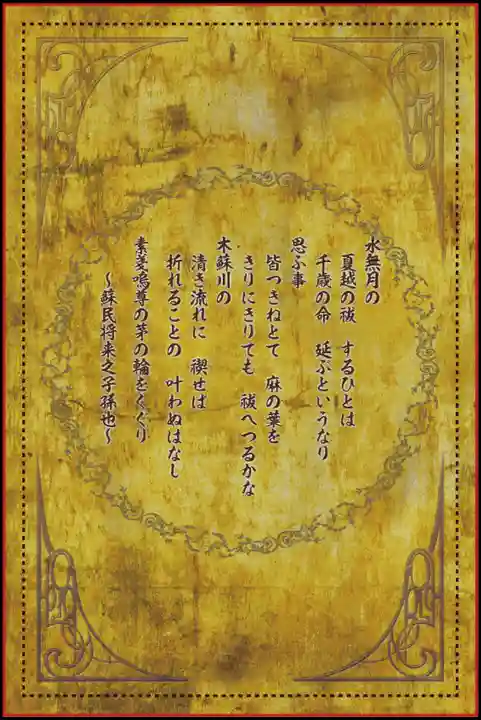 水無月の
夏越の祓　するひとは
千歳の命　延ぶというなり
思ふ事
皆つきねとて　麻の葉を
きりにきりても　祓へつるかな
木蘇川の
清き流れに　禊せは
折れることの　叶わぬはなし
素戔嗚尊の茅の輪をくぐり
～蘇民将来之子孫也～